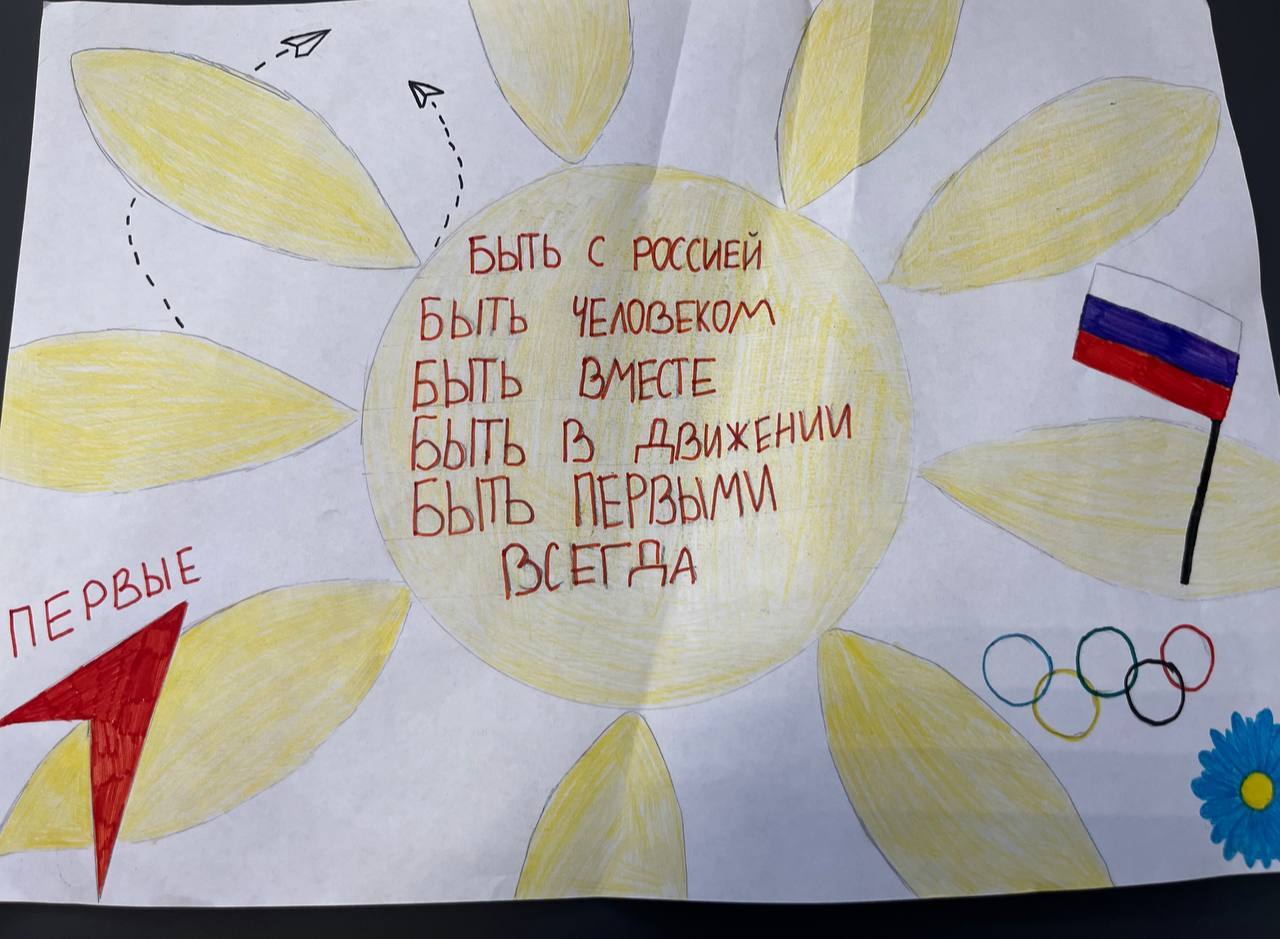 БЫТЬ С РОССИЕЙ
БЫТЬ ЧЕЛОВЕКОМ
БЫТЬ ВМЕСТЕ
БЫТЬ В ДВИЖЕНИИ
БЫТЬ ПЕРВЫМИ
ВСЕГДА
ПЕРВЫЕ